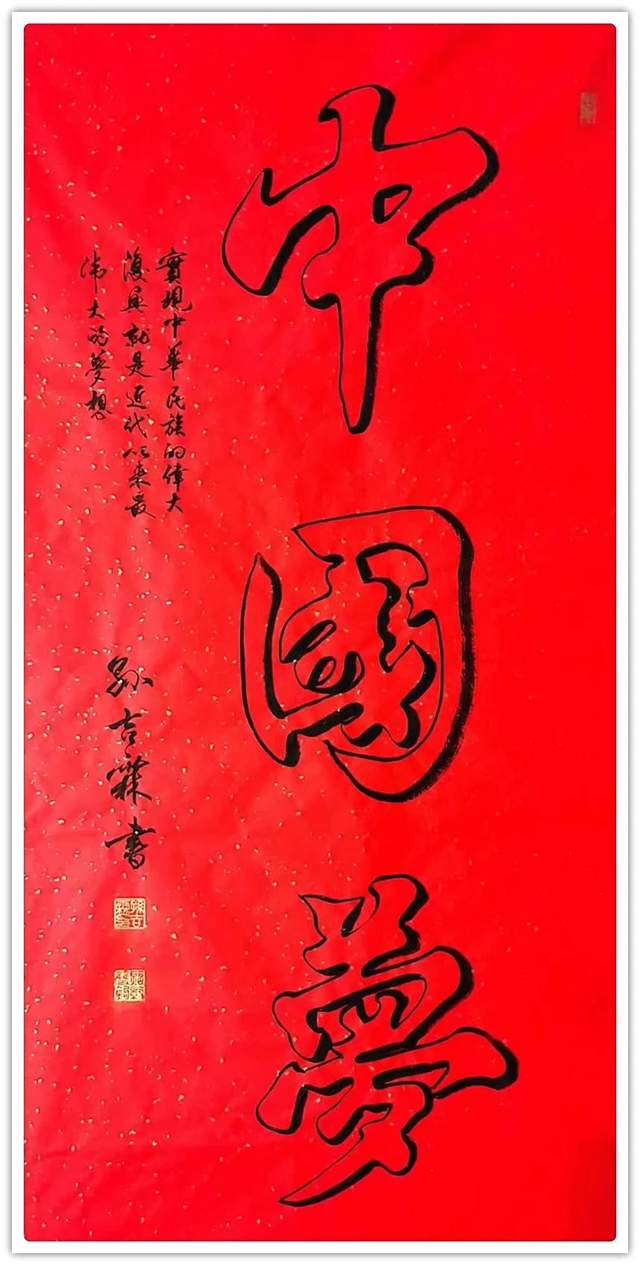 中國夢
實現中華民族的偉大
復興就是近代以來最
伟大的夢想
孙吉霖書